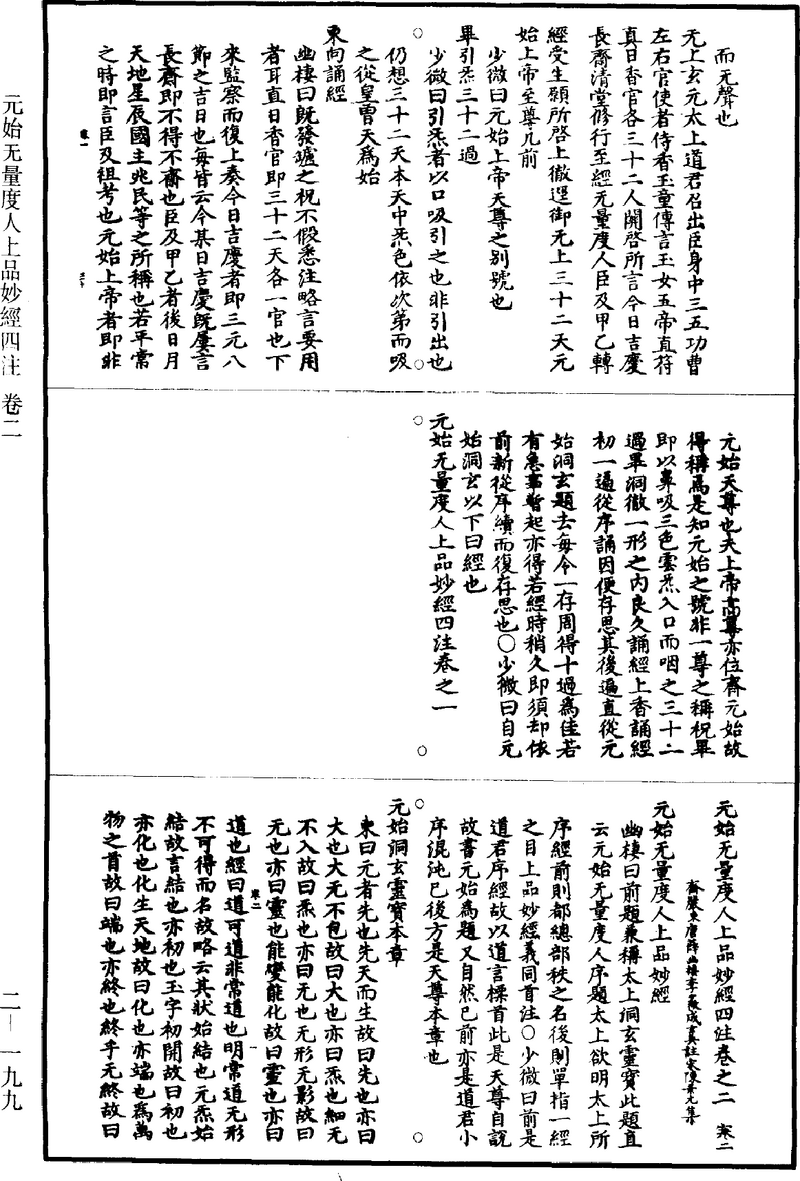 而无聲也
无上玄元太上道君召出臣身中三五功曹
左右官使者侍香玉童傳言玉女五帝直符
真日香官各三十二人開啓所言今日吉慶
長齋清堂修行至經无量度人臣及甲乙轉
經受生願所啓上徹逕御无上三十二天元
始上帝至尊几前
少微曰元始上帝天尊之别號也
畢引炁三十二過
少微曰引炁者以口吸引之也非引出也
仍想三十二天本天中炁色依次第而吸
之從皇曾天爲始
東向誦經
幽棲曰旣發爐之祝不假悉注略言要用
者耳直日香官即三十二天各一官也下
來監察而復上奏今日吉慶者即三元八
節之吉日也每皆云今某日吉慶旣屢言
長齋即不得不齋也臣及甲乙者後日月
天地星辰國主兆民等之所稱也若平常
之時即言臣及祖考也元始上帝者即非
元始天尊也夫上帝高尊亦位齋元始故
得稱焉是知元始之號非一尊之稱祝畢
即以鼻吸三色雲炁入口而咽之三十二
過畢洞徹一形之内良久誦經上香誦經
初一遍從序誦因便存思其後遍直從元
始洞玄題去每令一存周得十過爲佳若
有急事暫起亦得若經時稍久即須却依
前新從序續而復存思也○少微曰自元
始洞玄以下曰經也
元始无量度人上品妙經四注卷之一
元始无量度人上品妙經四注卷之二
齋嚴東唐薛幽棲李少微成玄英註宋陳景元集
元始无量度人上品妙經
幽棲曰前題兼稱太上洞玄靈寶此題直
云元始无量度人序題太上欲明太上所
序經前則都總部秩之名後則單指一經
之目上品妙經義同首注○少微曰前是
道君序經故以道言標首此是天尊自説
故書元始爲題又自然已前亦是道君小
序混沌已後方是天尊本章也
元始洞玄靈寶本章
東曰元者先也先天而生故曰先也亦曰
大也大无不包故曰大也亦曰炁也細无
不入故曰炁也亦曰无也无形无影故曰
无也亦曰靈也能變能化故曰靈也亦曰
道也經曰道可道非常道也明常道无形
不可得而名故略云其狀始結也元炁始
結故言結也亦初也玉字初開故曰初也
亦化也化生天地故曰化也亦端也爲萬
物之首故曰端也亦終也終乎无終故曰
元始无量度人上品妙經四注 卷二
二—一九九